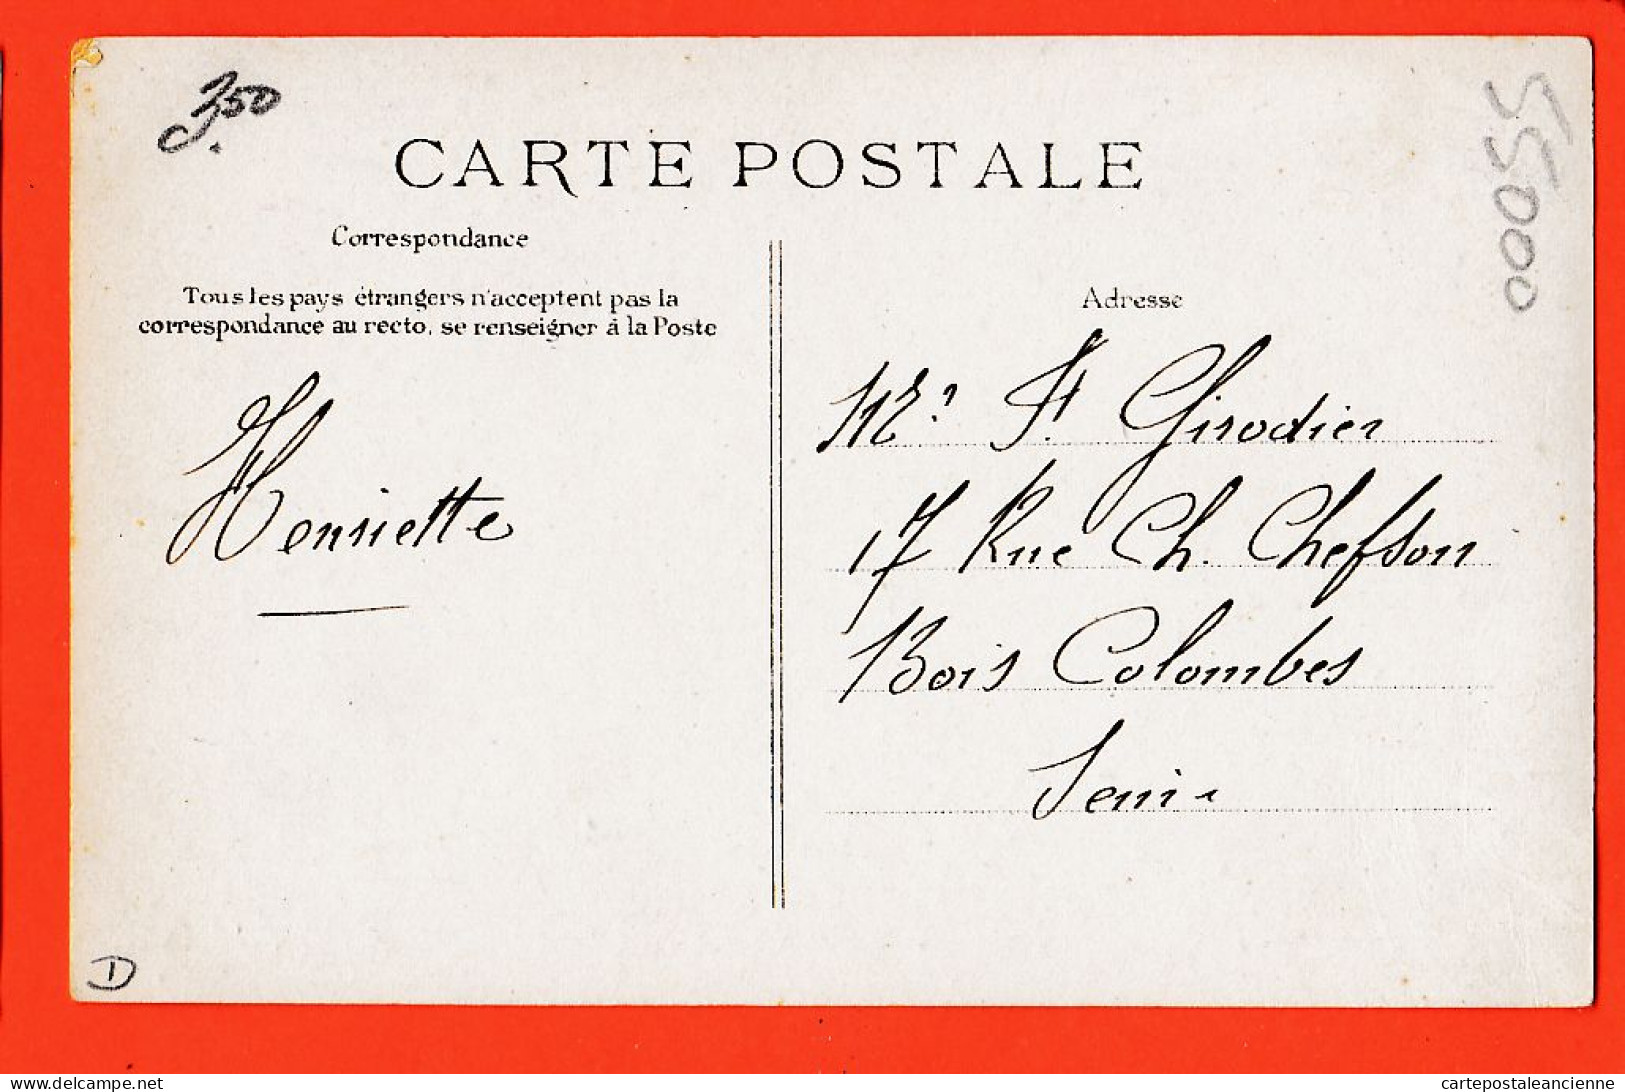 350
CARTE POSTALE
55000
Correspondance
Tous les pays étrangers n'acceptent pas la
correspondance au recto, se renseigner à la Poste
Henriette
Adresse
F. Girodier
17 Rue Ch. Chefson
Bois Colombes
Seine
D
cartes-postales-delcampe.net
cartepostaleancienne